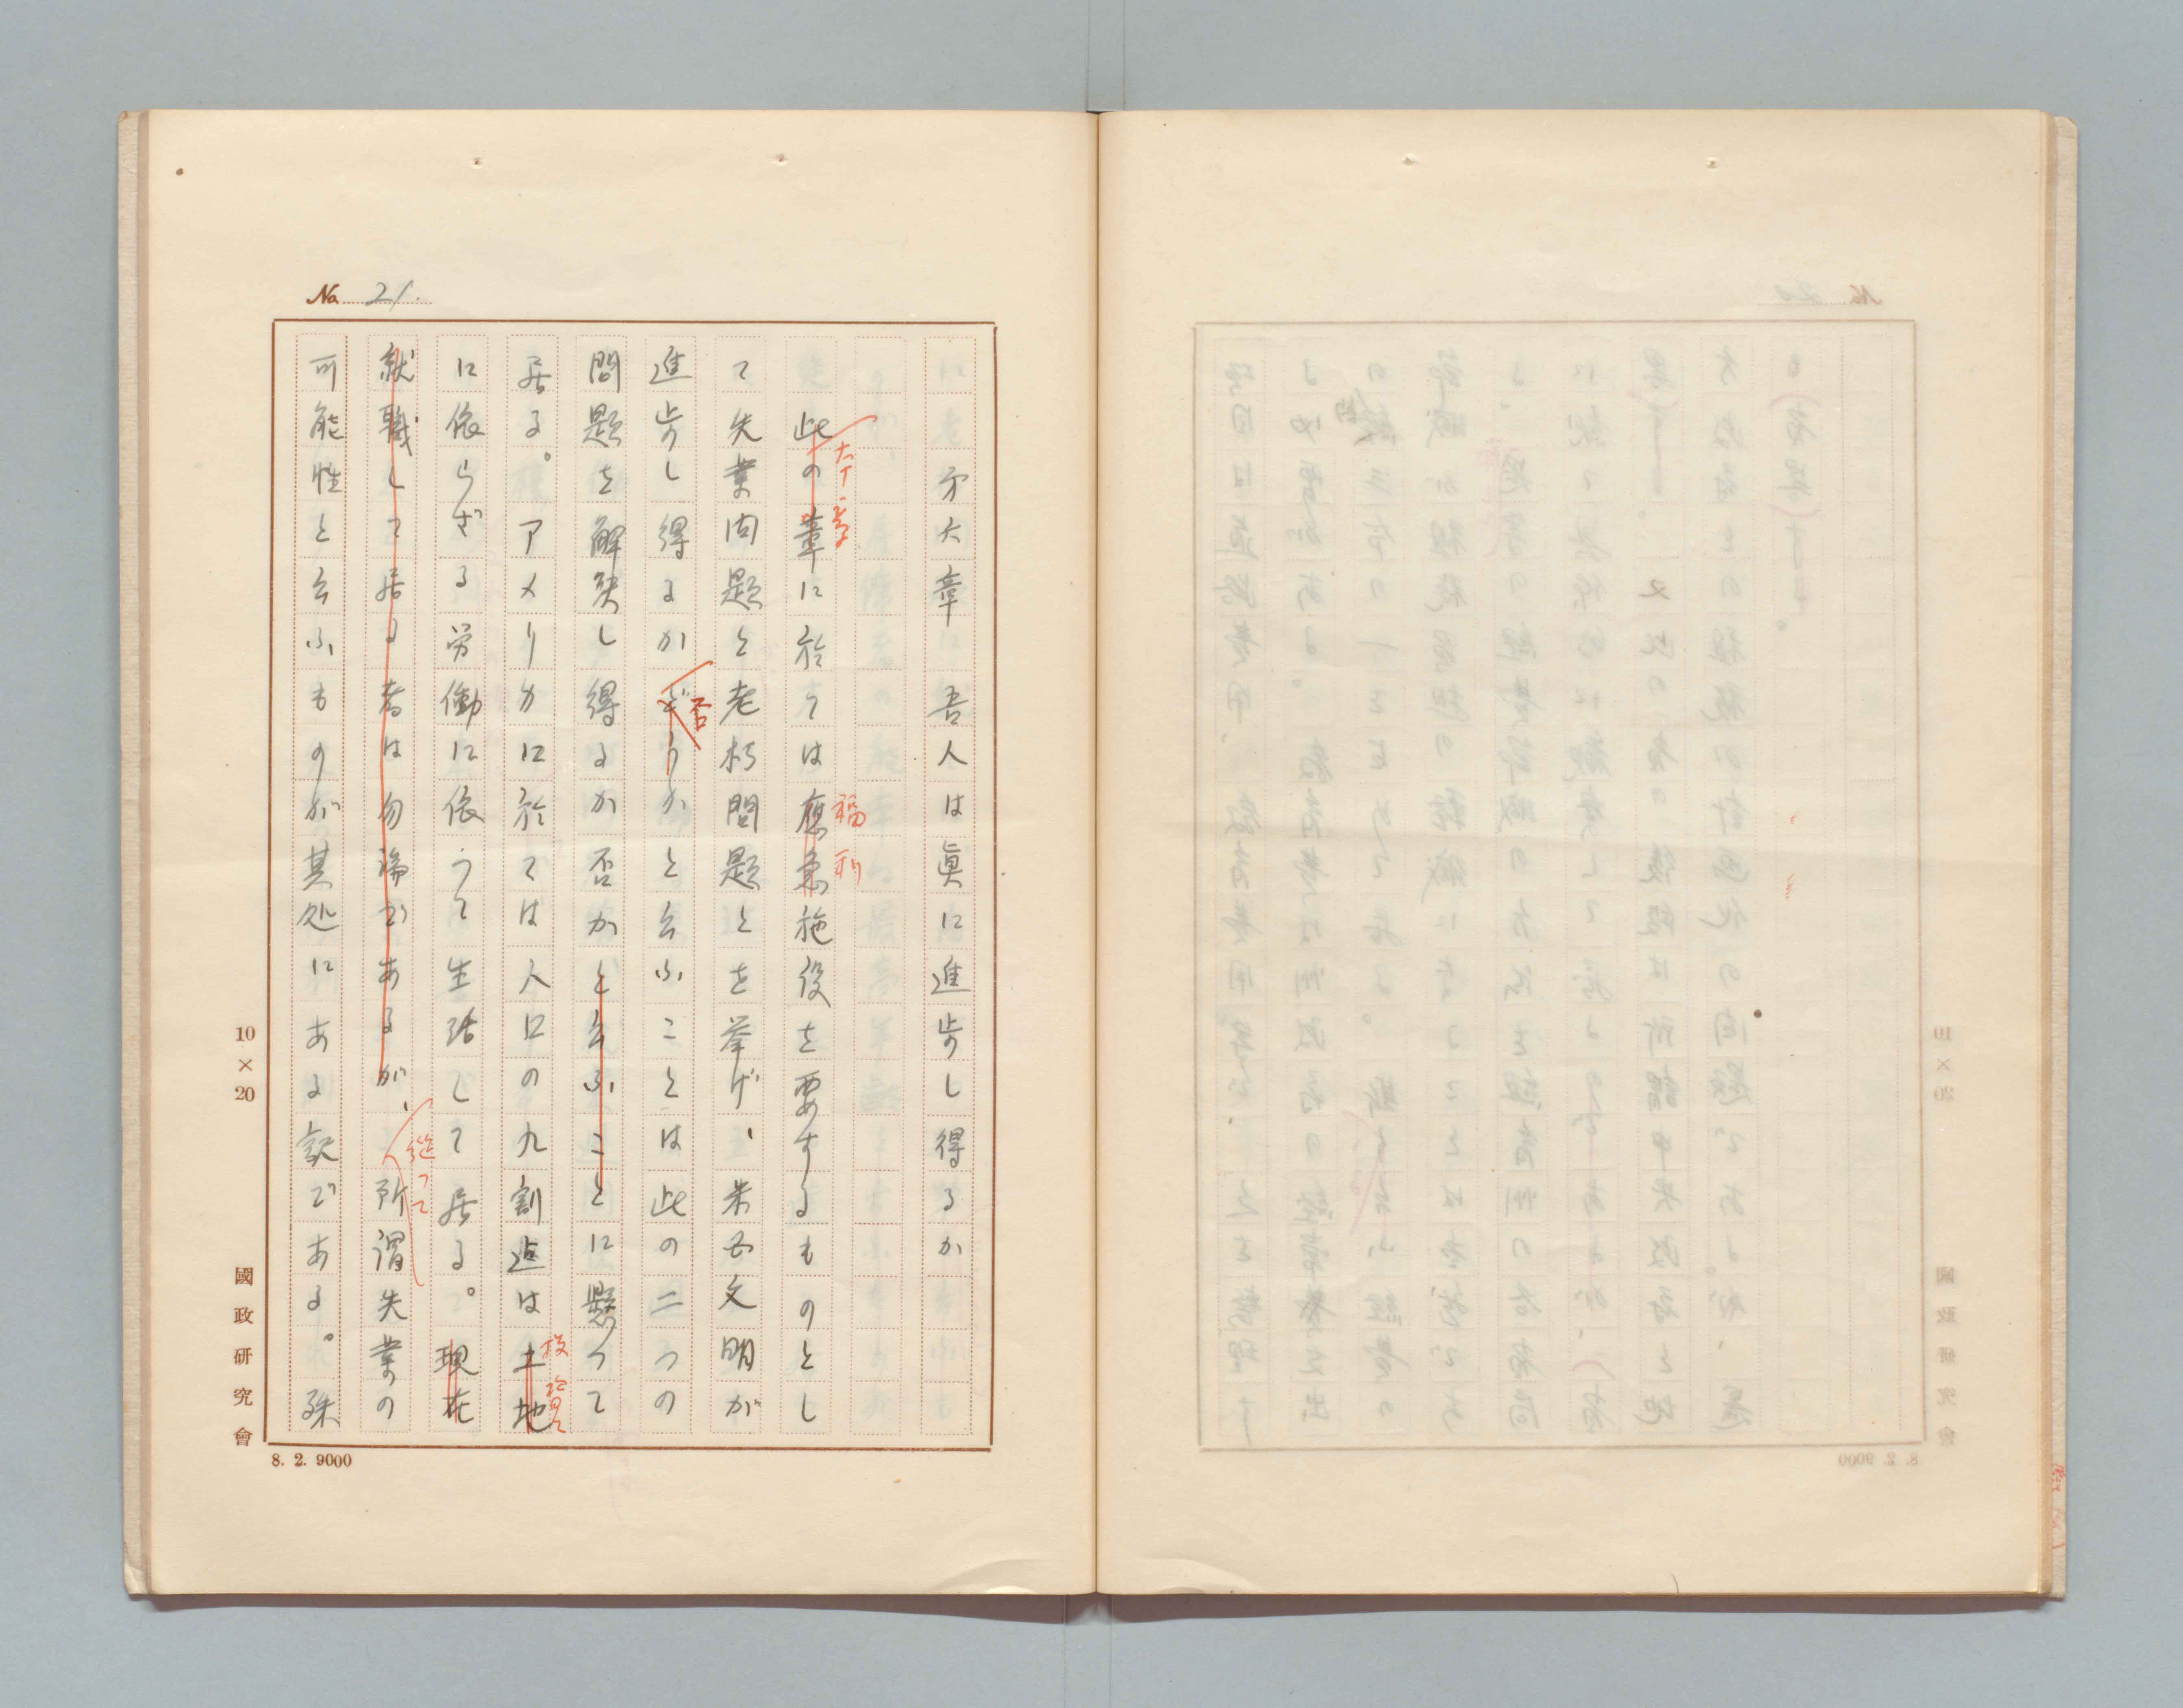 No. 21.
第六章　吾人は眞に進歩し得るか
此の章に於ては應急施役を要するものとし
第六章
福利
て失業問題と老朽問題とを挙げ、米國文明が
進歩し得るかどうかと云ふことは此の二つの
否
問題を解決し得るか否かと云ふことに懸つて
居る。アメリカに於ては人口の九割迄は土地
投資
に依らざる労働に依つて生活して居る。現在
就職して居る者は勿論であるが、所謂失業の
從つて
可能性と云ふものが其処にある訳である。殊
10×20
國政研究會
8. 2. 9000